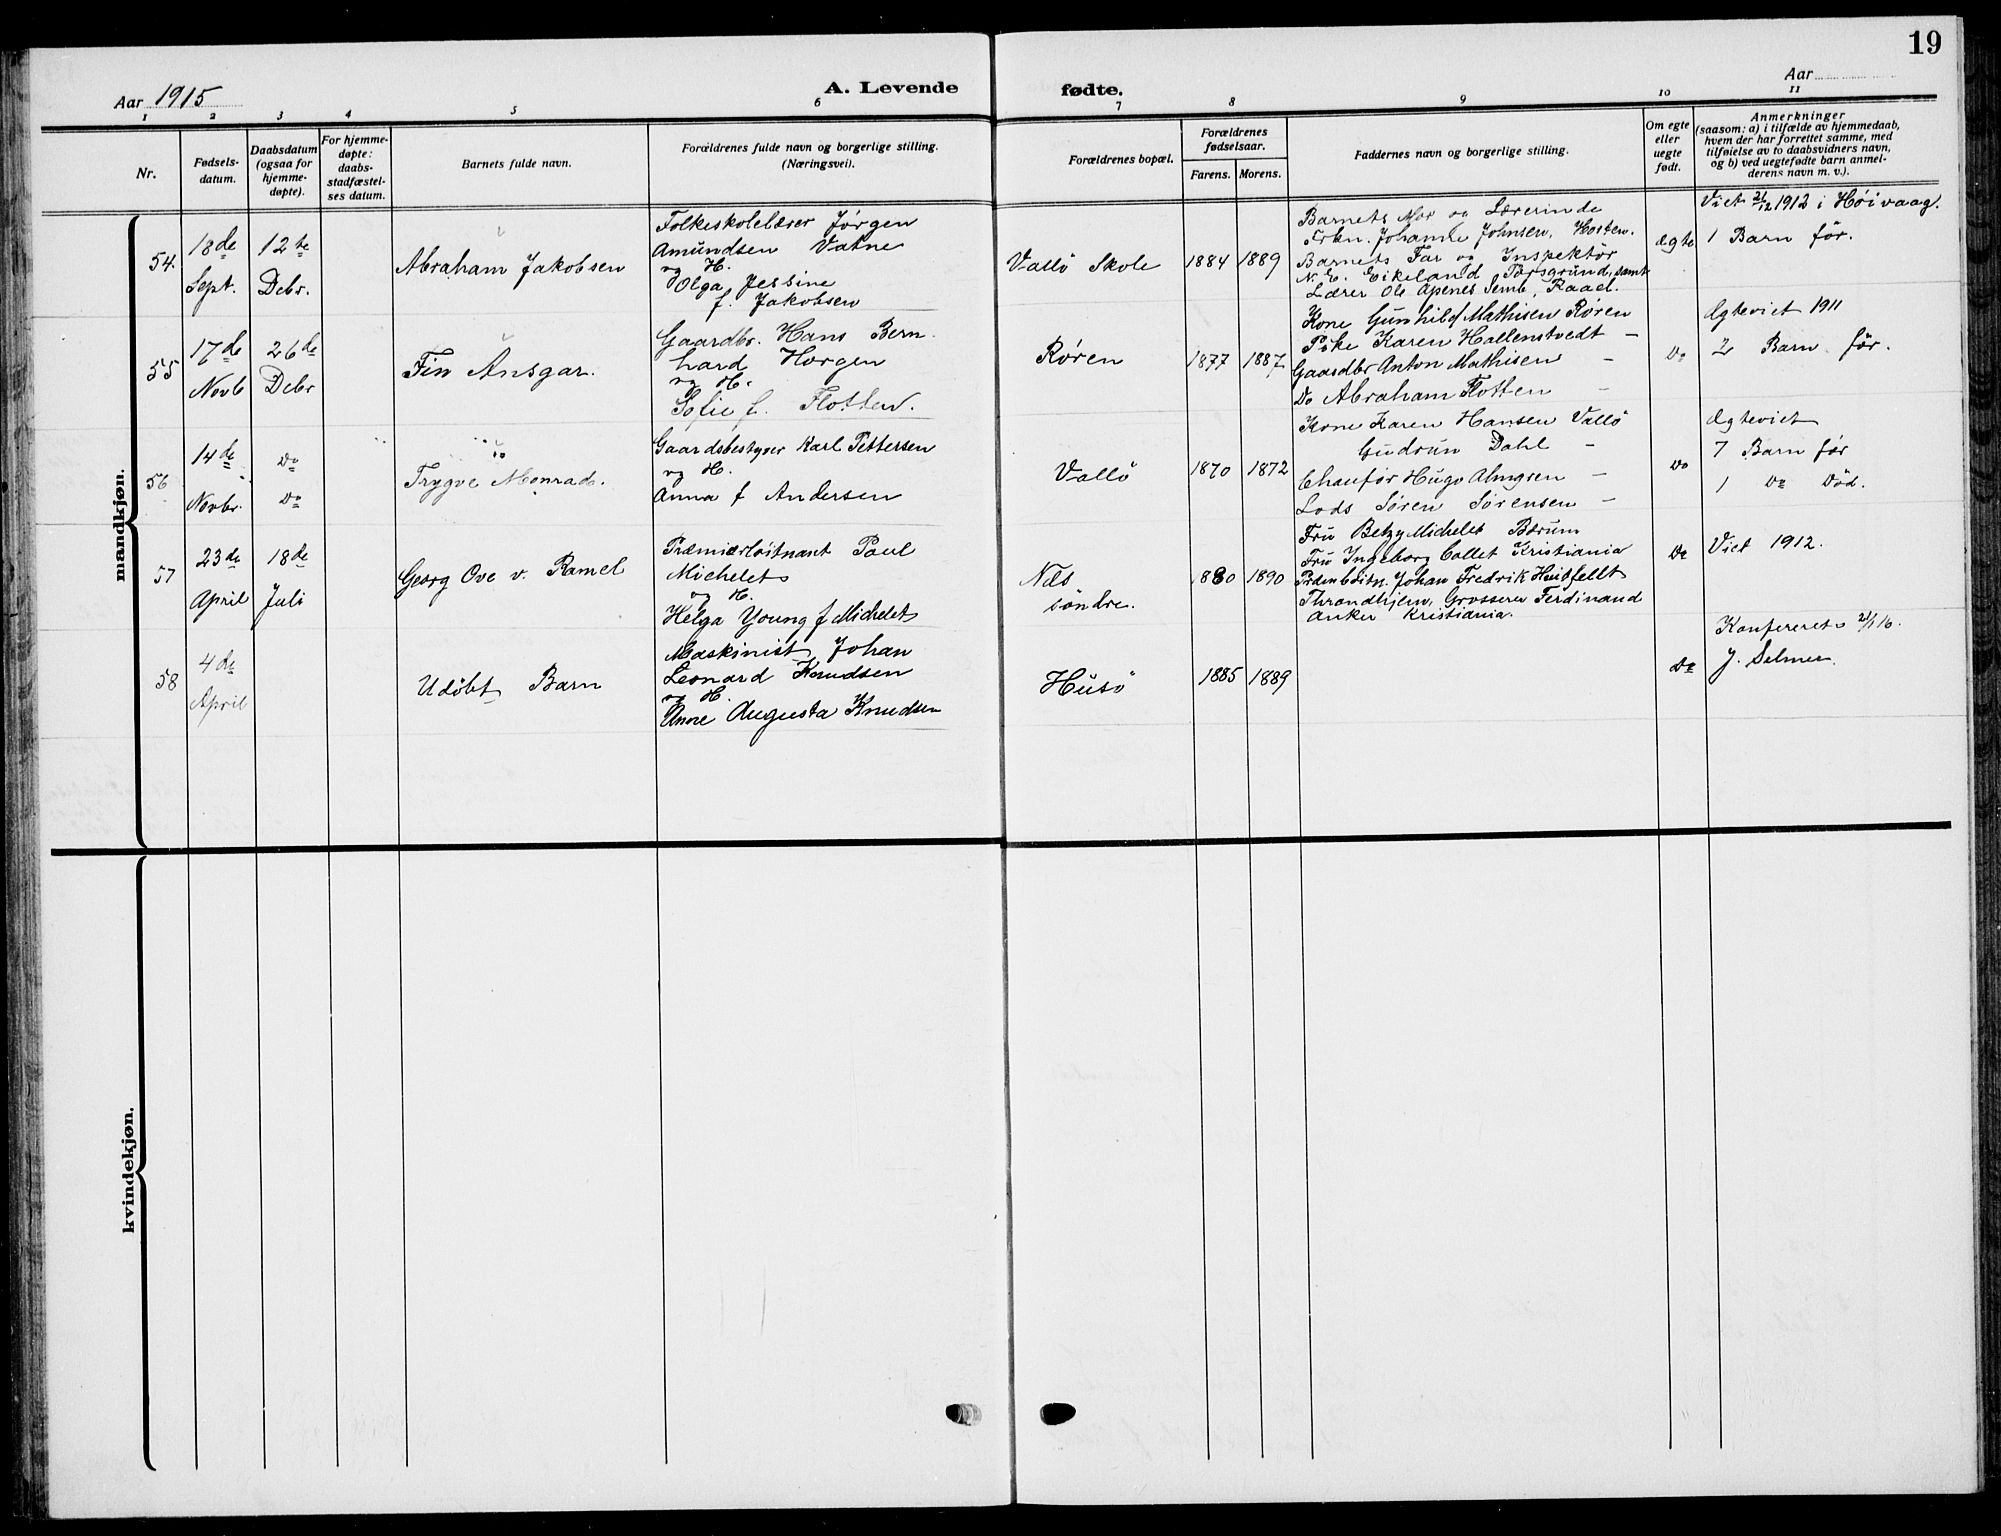 19
Aar 1915
A. Levende fødte.
Aar
1 2 3 4 5 6 7 8 9 10 11
Nr.
Fødsels-
datum.
Daabsdatum
(ogsaa for
hjemme-
døpte).
For hjemme-
døpte:
daabs-
stadfæstel-
ses datum.
Barnets fulde navn.
Forældrenes fulde navn og borgerlige stilling.
(Næringsvei).
Forældrenes bopæl.
Forældrenes
fødselsaar.
Farens. Morens.
Faddernes navn og borgerlige stilling.
Om egte
eller
uegte
født.
Anmerkninger
(saasom: a) i tilfælde av hjemmedaab,
hvem der har forrettet samme, med
tilføielse av to daabsvidners navn,
og b) ved uegtefødte barn anmel-
derens navn m. v.).
mandkjøn.
54.
18de
Sept.
12te
Debr.
Abraham Jakobsen
Folkeskolelærer Jørgen
Amundsen Vatne
og H.
Olga Jessine
f. Jakobsen
Vallö Skole
1884 1889
Barnets Mor og Lærerinde
Frkn. Johanne Johnsen, Hosten.
Barnets Far og Inspektör
N. E. Eikeland, Porsgrund, samt
Lærer Ole Apenes Semb, Raael.
Ægte
Viet 26/12 1912 i Höivaag.
1 Barn för.
55
17de
Novb
26de
Debr
Fin Ansgar.
Gaardbr. Hans Bern
hard Horgen
og H.
Sofie f. Flotten.
Røren
1877 1887
Kone Gunhild Mathisen Røren
Pike Karen Hallenstvedt —
Gaardbr Anton Mathisen —
Do Abraham Flotten —
Do
Ægteviet 1911
2 Barn för.
56
14de
Novbr.
Do
Do
Trygve Monrad.
Gaardsbestyrer Karl Pettersen
og H.
Anna f Andersen
Vallö
1870 1872
Kone Karen Hansen Vallö
Gudrun Dahl —
Chauför Hugo Almgren —
Lods Søren Sørensen —
Do
Ægteviet
7 Barn før
1 Do Död.
57
23de
April
18de
Juli
Georg Ove v. Ramel
Præmierløitnant Paul
Michelet
og H.
Helga Young f Michelet
Næs
söndre.
1880 1890
Fru Betzy Michelet Bærum
Fru Ingeborg Collet Kristiania
Johan Fredrik Huitfeldt
Throndhjem, Grosserer Ferdinand
Anker Kristiania.
Do
Viet 1912.
58
4de
April
Udöbt Barn
Maskinist Johan
Leonard Knudsen
og H.
Anne Augusta Knudsen
Husö
1885 1889
Do
Konfereret 21/1 16.
J. Selmer.
kvindekjøn.